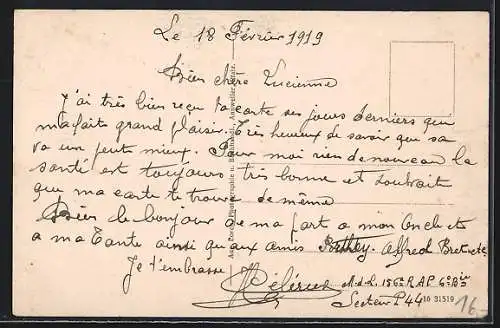 Le 18 Février 1919
Bien chère Lucienne
J'ai très bien reçu ta carte ses jours derniers qui
m'a fait grand plaisir. Très heureux de savoir que sa
va un peut mieux. Pour moi rien de nouveau la
santé est toujours très bonne et souhait
que ma carte te trouve de même
Bien le bonjour de ma part a mon Oncle et
a ma Tante ainsi qu'aux amis Alfred
Je t'embrasse
M.d.L. 156e R.A.P 6e Bie
Secteur P 44
10 31519
16.-